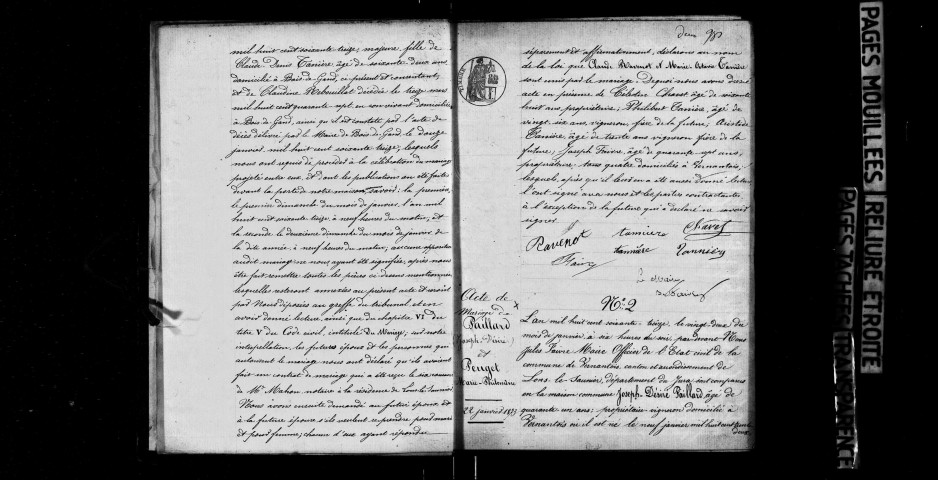 mil huit cent soixante treize, majeure, fille de
Claude Denis Tanière âgé de soixante deux ans
domicilié à Bois-de-Gand, ci présent et consentant,
et de Claudine Rebouillat décédée le treize mars
mil huit cent quarante sept en son vivant domiciliée
à Bois de Gand, ainsi qu'il est constaté par l'acte de
décès délivré par le Maire de Bois de Gand le douze
janvier mil huit cent soixante treize; lesquels
nous ont requis de procéder à la célébration du mariage
projeté entre eux et dont les publications ont été faites
devant la porte de notre maison, savoir: la première
le premier dimanche du mois de janvier, l'an mil
huit cent soixante treize à neuf heures du matin, et
la seconde le deuxième dimanche du mois de janvier de
la dite année, à neuf heures du matin, aucune opposition
audit mariage ne nous ayant été signifiée, après nous
être fait remettre toutes les pièces ci dessus mentionnées
lesquelles resteront annexées au présent acte et seront
par Nous déposées au greffe du tribunal et en
avoir donné lecture, ainsi que du chapitre VI du
titre V du Code civil, intitulé Du Mariage; sur notre
interpellation, les futurs époux et les personnes qui
autorisent le mariage nous ont déclaré qu'ils avaient
fait un contrat de mariage qui a été reçu le
de Me Mahon notaire à la résidence de Lons le Saunier
Nous avons ensuite demandé au futur époux et
à la future épouse s'ils veulent se prendre pour mari
et pour femme; chacun d'eux ayant répondu
deux
séparément et affirmativement, déclarons au nom
de la loi que Claude Ravenot et Marie
Tanière
sont unis par le mariage De quoi nous avons dressé
acte en présence de Célestin Chavet âgé de soixante
huit ans, propriétaire; Philibert Tanière, âgé de
vingt six ans, vigneron, frère de la future, Aristide
Tanière, âgé de trente ans vigneron frère de la
future; Joseph Faivre, âgé de quarante sept ans,
propriétaire tous quatre domiciliés à Vernantois,
lesquels, après qu'il leur en a été aussi donné lecture
l'ont signé avec nous et les parties contractantes
à l'exception de la future qui a déclaré ne savoir
signer.
Ravenot tanniere Chavet
tannière Tannière
Le Maire
Acte de
Mariage de
Paillard
(Joseph Désiré)
et
Peuget
Marie Philandrie
22 janvier 1873
No. 2
L'an mil huit cent soixante treize le vingt-deux du
mois de janvier à six heures du soir pardevant Nous
Jules Faivre Maire Officier de l'Etat civil de la
commune de Vernantois, canton et arrondissement de
Lons-le-Saunier, département du Jura sont comparus
en la maison commune Joseph Désiré Paillard âgé de
quarante un ans; propriétaire-vigneron domicilié à
Vernantois où il est né le neuf janvier mil huit cent trente
deux
PAGES MOUILLEES RELIURE ETROITE
PAGES TACHEES TRANSPARENCE